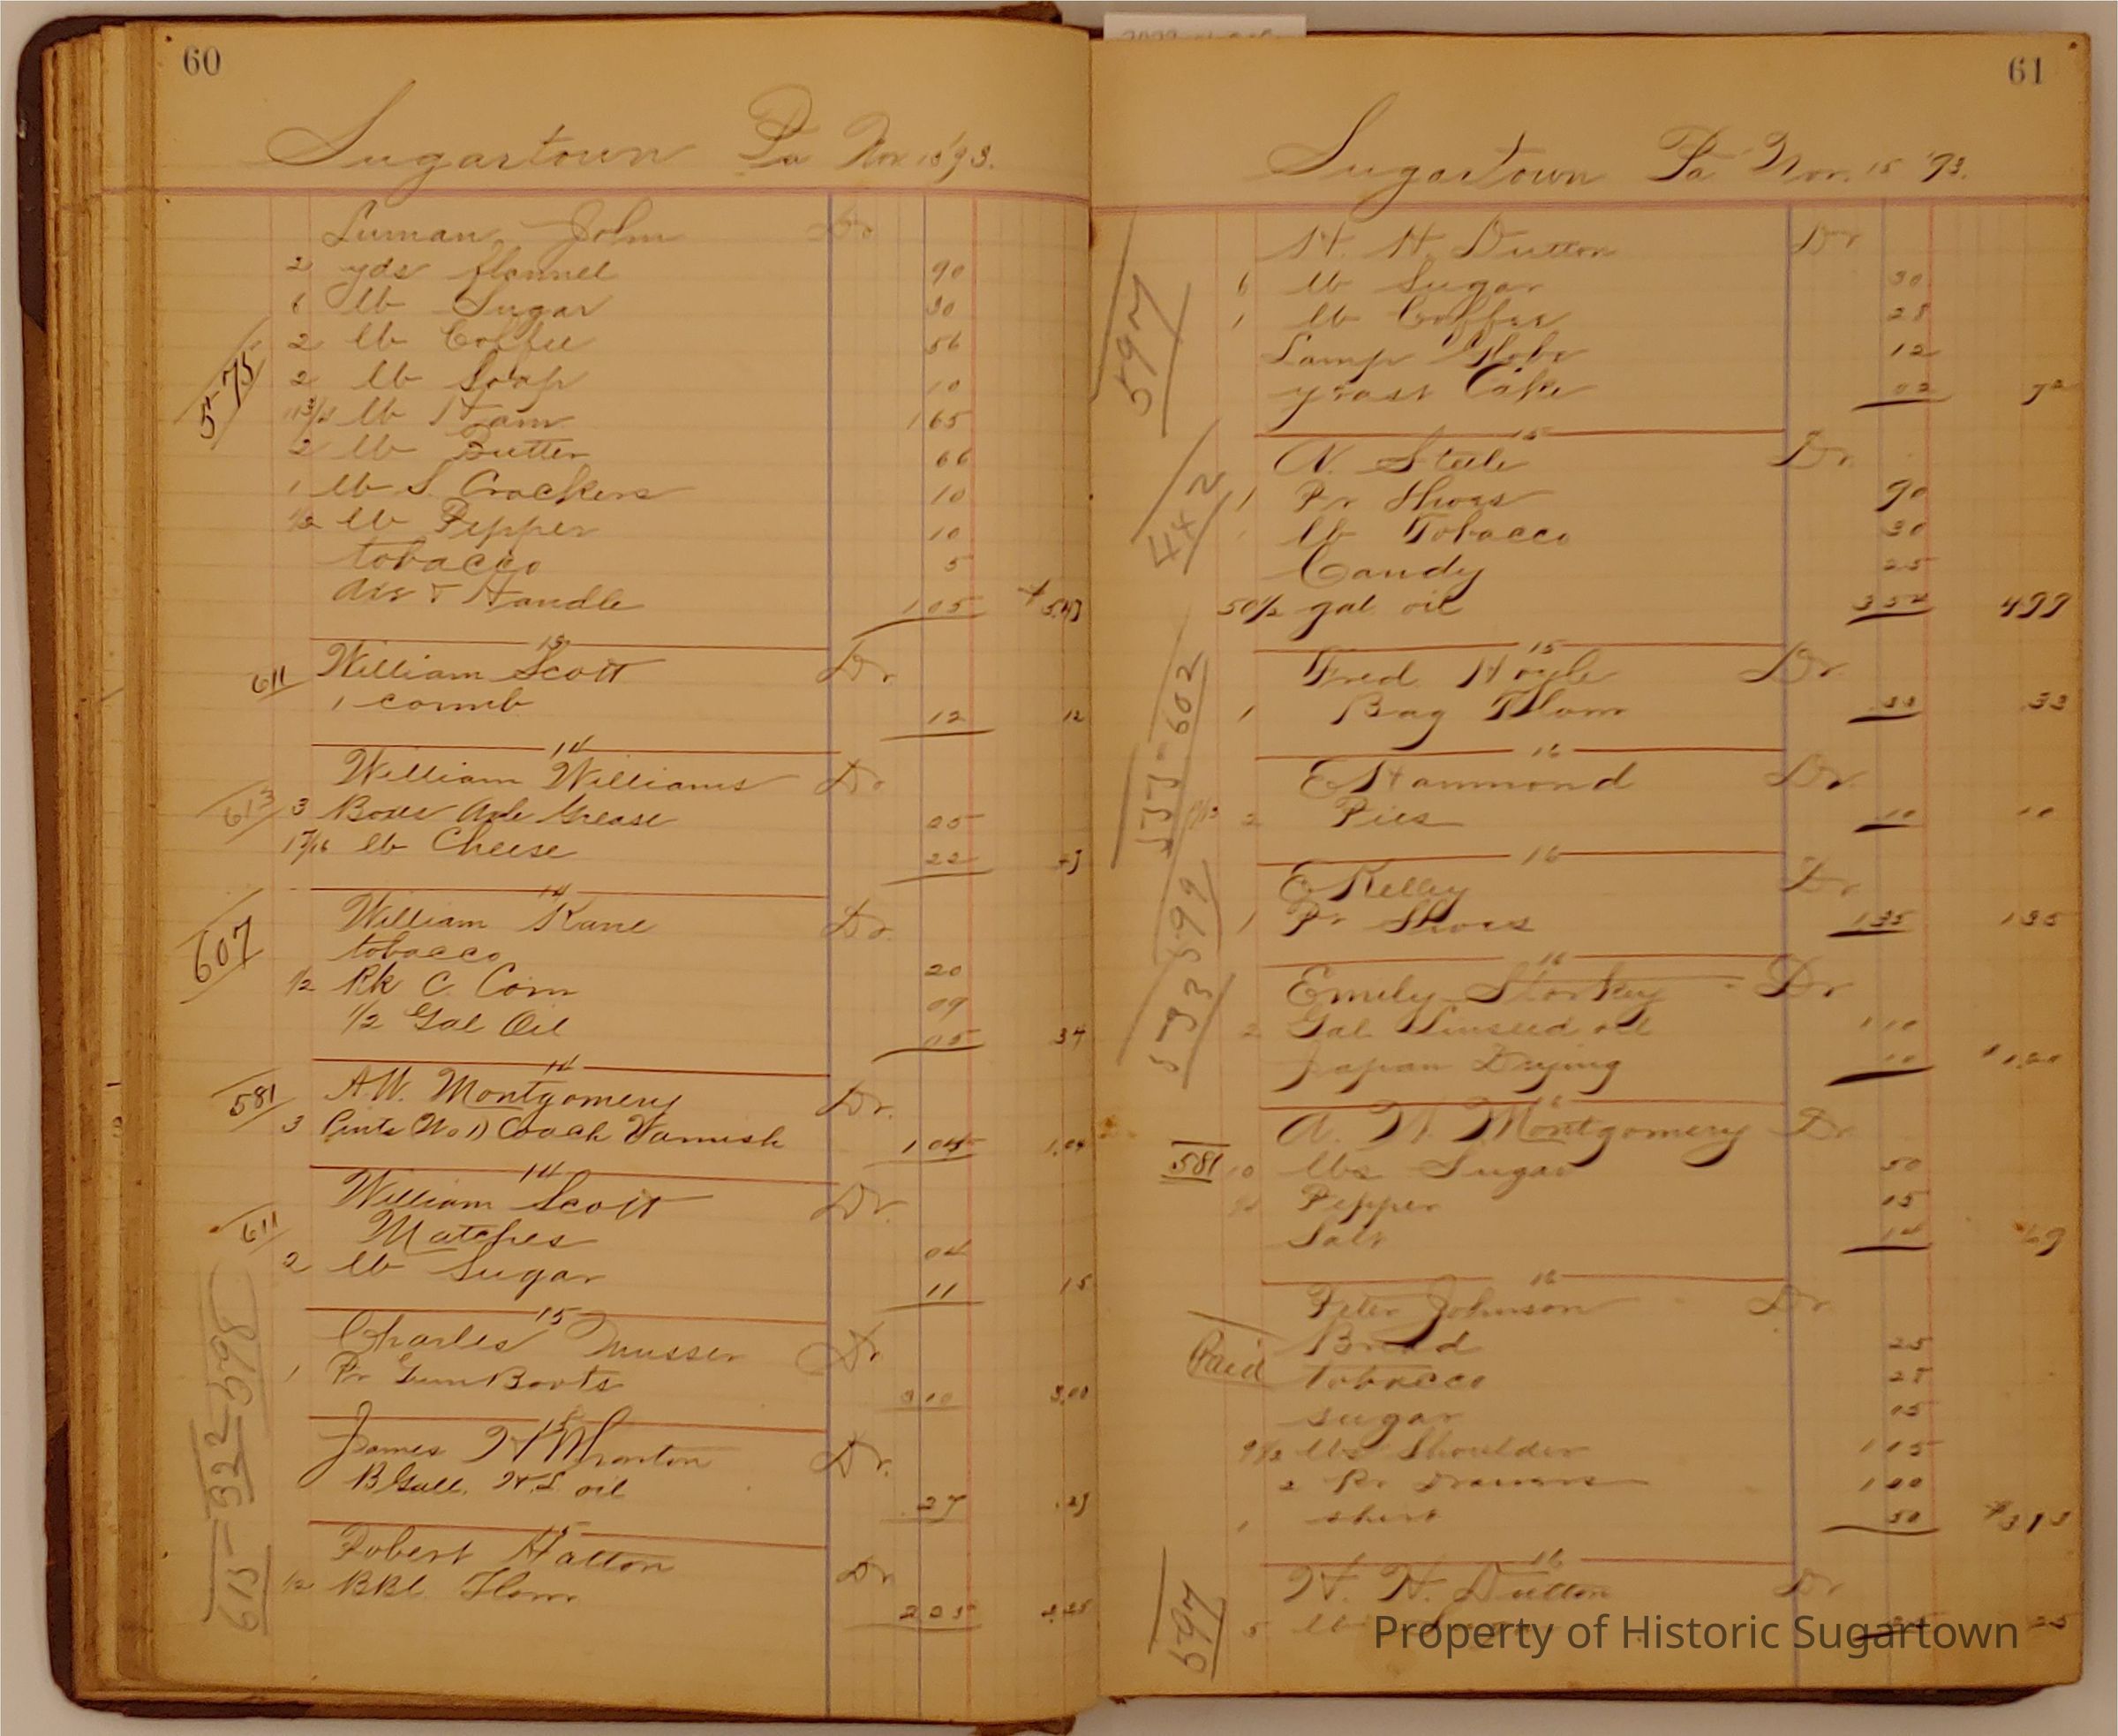 60
Sugartown Pa Nov 13 '93.
Luman, John Dr
2 yds flannel 90
6 lb Sugar 30
2 lb Coffee 56
575
2 lb Soap 10
11 3/4 lb Ham 165
2 lb Butter 66
1 lb S. Crackers 10
1/2 lb Pepper 10
tobacco 5
Axe & Handle 105
13
William Scott Dr.
611
1 comb 12 12
14
William Williams Dr
613
3 Boxes Axle Grease 25
1 7/16 lb Cheese 22
14
William Kane Dr.
607
tobacco 20
1/2 Pk C. Corn 09
1/2 Gal Oil 05 34
14
581
A.W. Montgomery Dr.
3 Pints No 1) Coach Varnish 104 1,04
14
William Scott Dr.
611
Matches 04
2 lb Sugar 11 15
15
Charles Musser Dr
1 Pr Gum Boots 300 3,00
598
322
615
15
James H Wharton Dr.
B Gall. H.L oil 27
15
Robert Hatton Dr
1/2 BBl Flour 225 2,25
61
Sugartown Pa Nov. 15 '93.
H. H. Dutton Dr
597
6 lb Sugar 30
1 lb Coffee 28
Lamp Globe 12
yeast Cake 02 72
15
N. Steele Dr.
442
1 Pr Shoes 90
lb Tobacco 30
Candy 25
50 1/2 gal oil 354 499
15
Fred Hoyle Dr.
602
1 Bag Flour 33 .33
16
E Hammond Dr.
2 Pies 10 10
16
E Kelley Dr
599
1 Pr Shoes 1,35 135
16
Emily Storkey Dr
593
2 Gal Linseed oil 110
Japan Drying 10 $1,20
16
A. W. Montgomery Dr
581
10 lbs Sugar 50
Pepper 15
Salt 14
16
Peter Johnson Dr
Paid
Bread 25
Tobacco 28
sugar 15
9 1/2 lbs Shoulder 115
2 Pr Drawers 100
1 shirt 50
16
H. H. Dutton Dr
597
5 lb 25 25
Property of Historic Sugartown